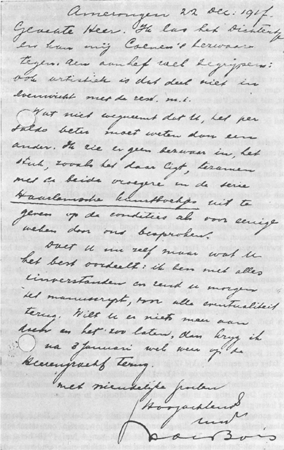 Amerongen 22 Dec. 1917.
Geachte Heer. Ik las het Dichtertje
en kan mij Coenen's bezwaar
tegen den aanhef zeer begrijpen:
ook artistiek is dat deel niet in
evenwicht met de rest, m.i.
Wat niet wegneemt dat U, het per
saldo beter moet weten dan een
ander. Ik zie er geen bezwaar in, het
stuk, zooals het daar ligt, te zamen
met de beide vroegere in de serie
uit te
geven op de condities als voor eenige
weken door ons besproken.
Doet U nu zelf maar wat U
het best oordeelt: ik ben met alles
inverstanden en zend U morgen
het manuscript, voor alle eventualiteit
terug. Wilt U er niets meer aan
doen en het zoo laten, dan krijg ik
na 3 Januari wel weer op de
Heerengracht terug.
met vriendelijke groeten
Hoogachtend